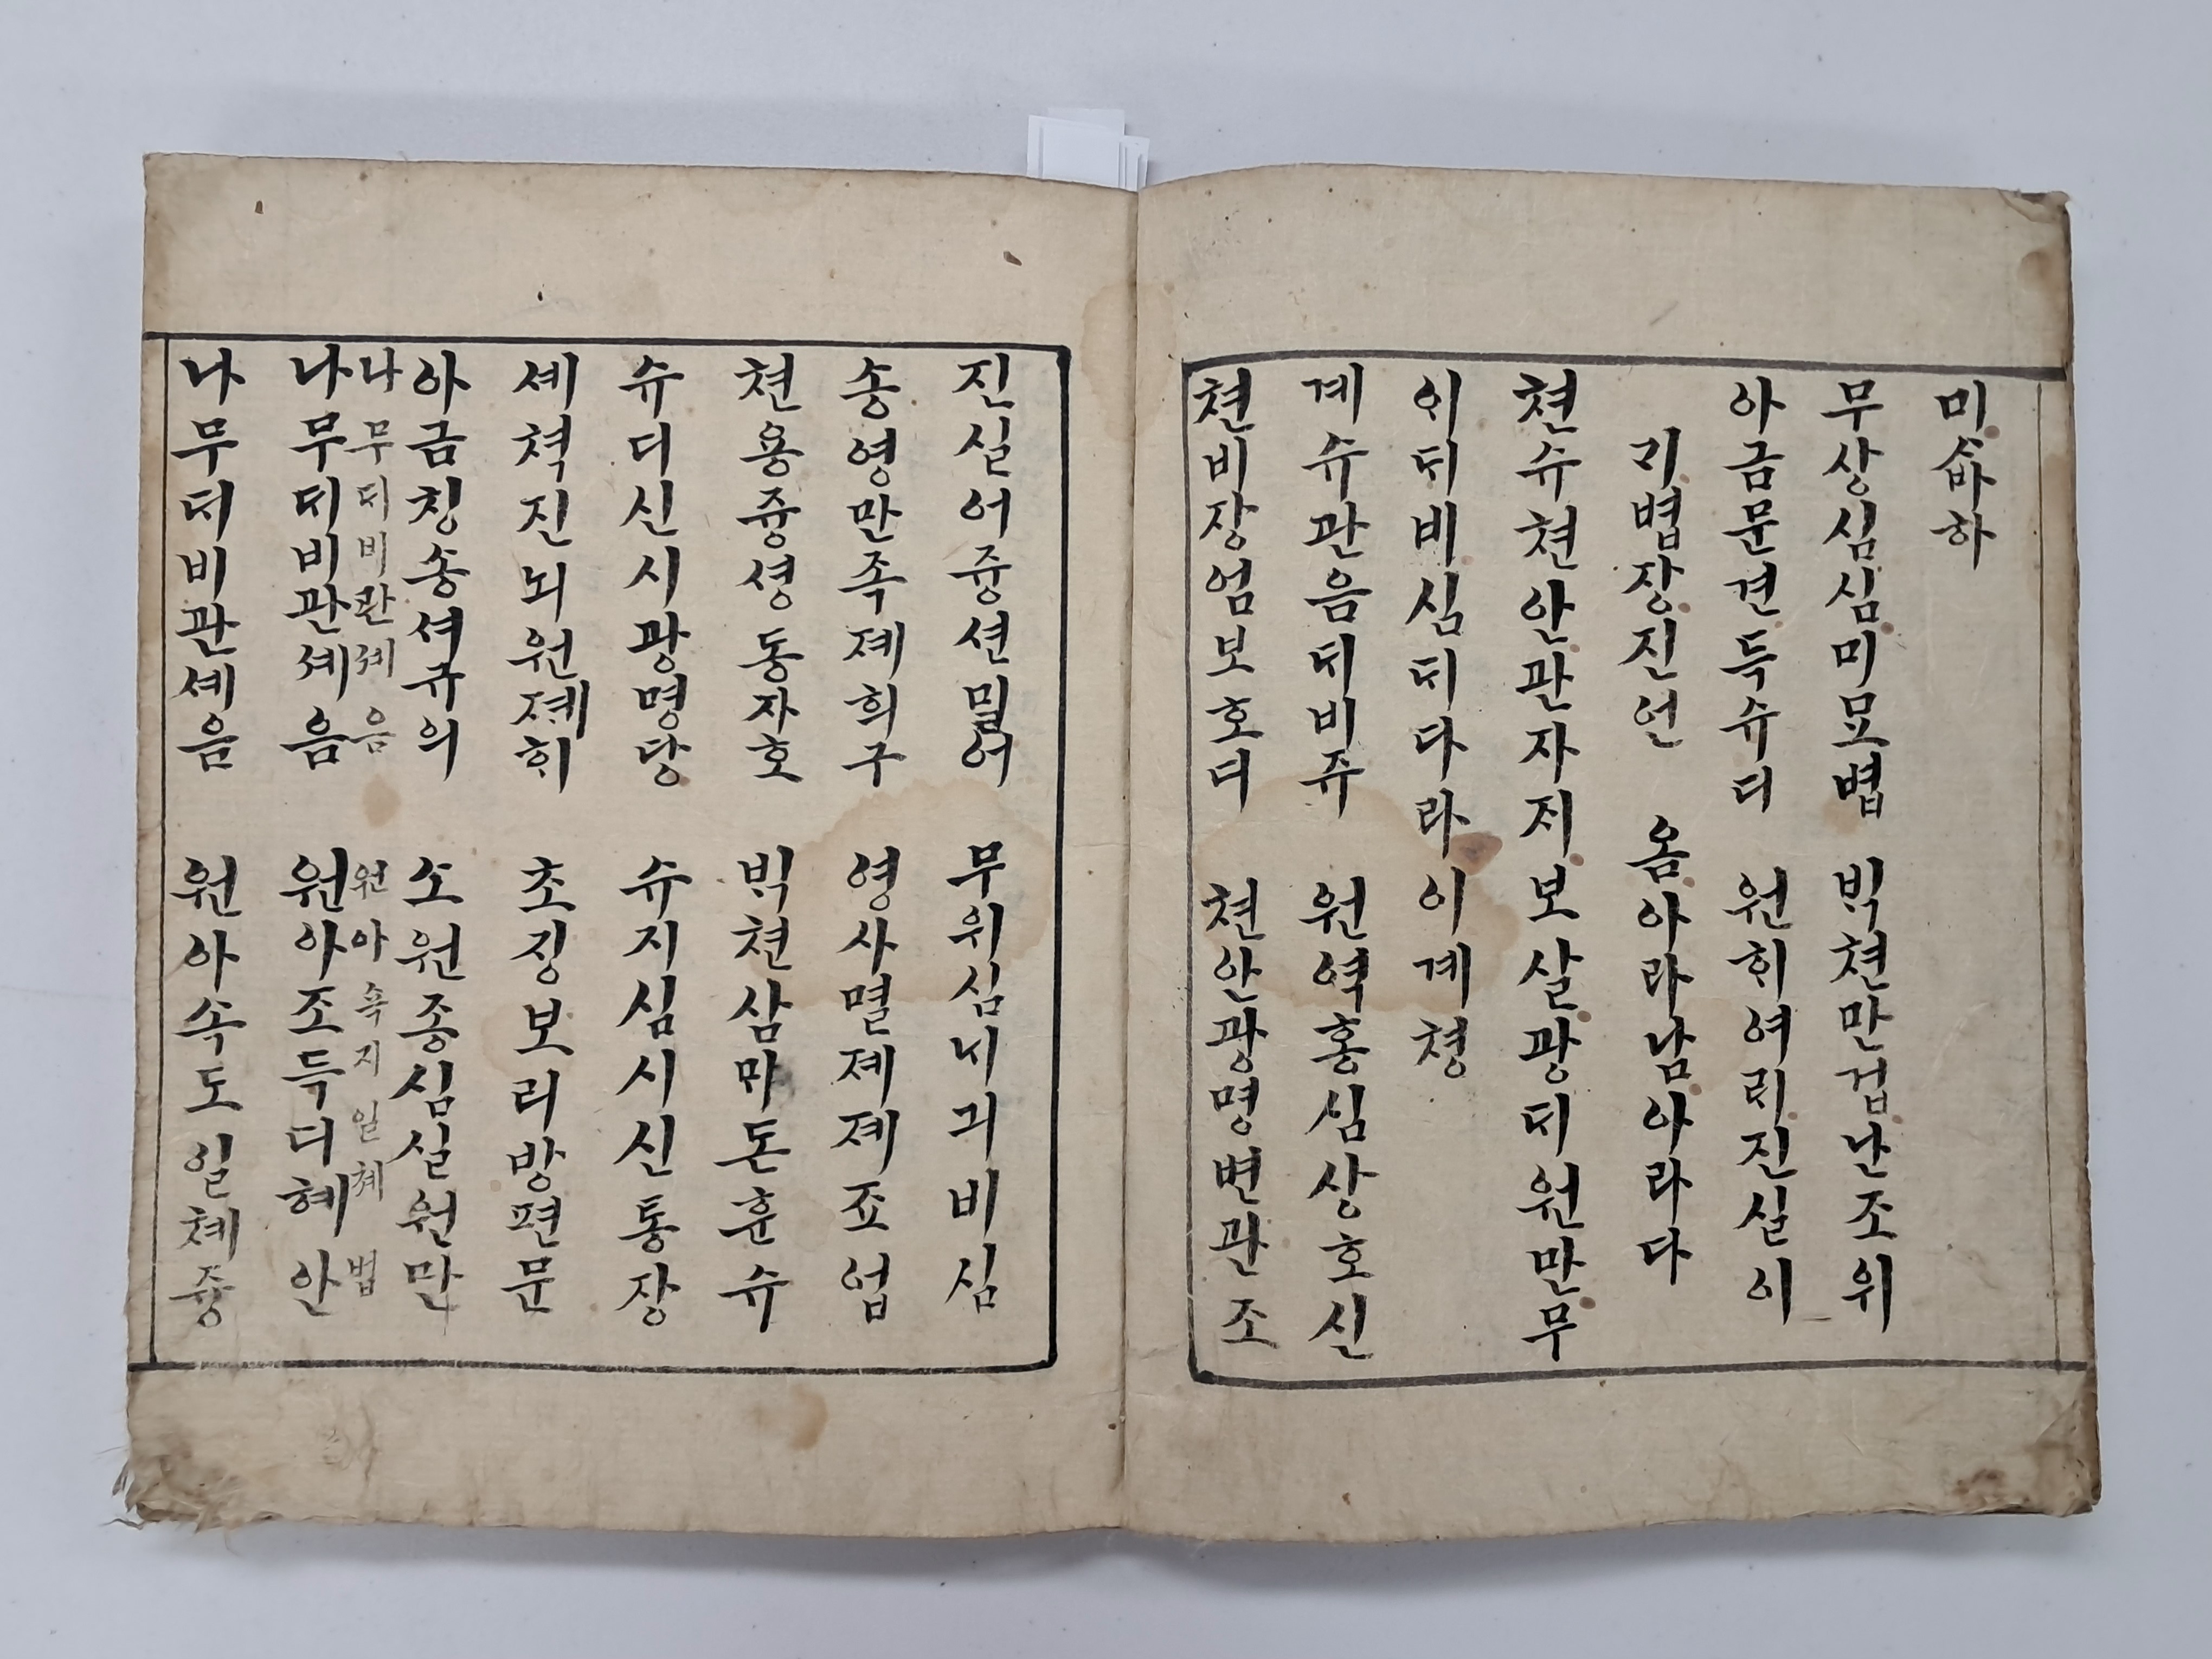 미ᄉᆞ바하
무상심심미묘볍 ᄇᆡᆨ쳔만겁난조위
아금문견득슈디 원ᄒᆡ여ᄅᆡ진실이
ᄀᆡ볍장진언 옴아라남아라다
쳔슈쳔안관자ᄌᆡ보살광ᄃᆡ원만무
ᄋᆡᄃᆡ비심ᄃᆡ다라이계쳥
계슈관음ᄃᆡ비쥬 원역홍심상호신
쳔비장엄보호디 쳔안광명변관조
진실어즁션밀어 무위심ᄂᆡ긔비심
송영만족졔희구 영사멸졔졔죠업
쳔용즁셩동자호 ᄇᆡᆨ쳔삼ᄆᆡ돈훈슈
슈디신시광명당 슈지심시신통장
셰쳑진뇌원졔ᄒᆡ 초징보리방편문
아금칭송셔규의 소원종심실원만
나무ᄃᆡ비관셰음 원아속지일쳬법
나무ᄃᆡ비관셰음 원아조득디혜안
나무ᄃᆡ비관셰음 원아속도일쳬즁